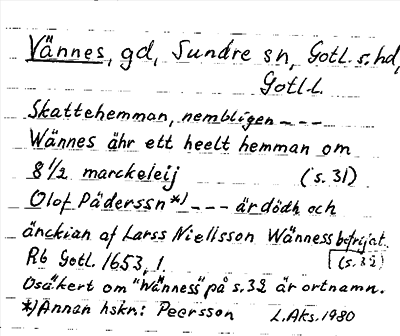 Vännes, gd, Sundre sn, Gotl. s. hd,
Gotl.L.
Skattehemman, nembligen - - -
Wännes ähr ett heelt hemman om
8 1/2 marckeleij (s. 31)
Olof Päderssn*) - - - är dödh och
änckian af Larss Niellsson Wänness befrijat.
(s. 32)
Rb Gotl. 1653, 1.
Osäkert om "Wänness" på s. 32 är ortnamn.
*) Annan hskr.: Peersson L. Aks. 1980